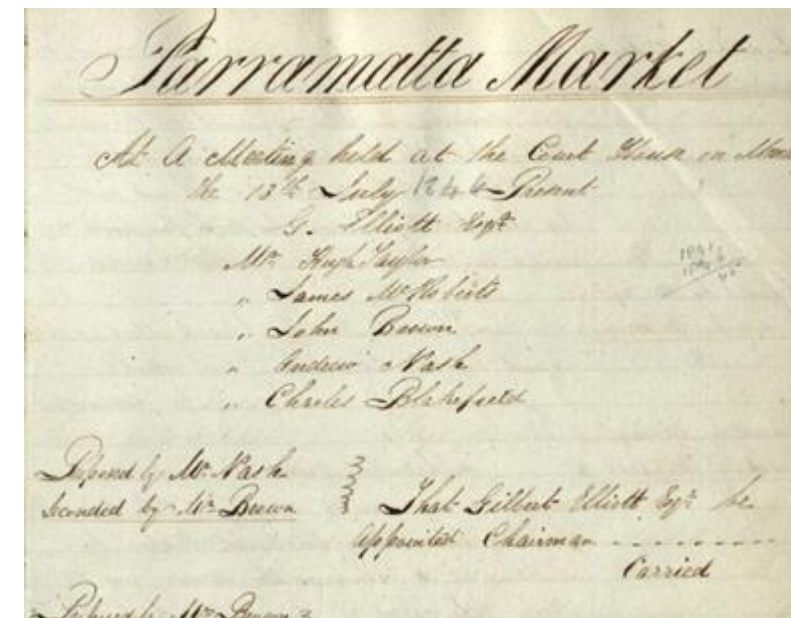 Parramatta Market
At A Meeting held at the Court House on
the 13th July 1846 Present
G. Elliott Esqr
Mr Hugh Taylor
" James McRoberts
" John Brown
" Andrew Nash
" Charles Blakefield
Proposed by Mr Nash
Seconded by Mr Brown
That Gilbert Elliott Esqr be
appointed Chairman - - - - - - - -
Carried
Proposed by Mr Brown